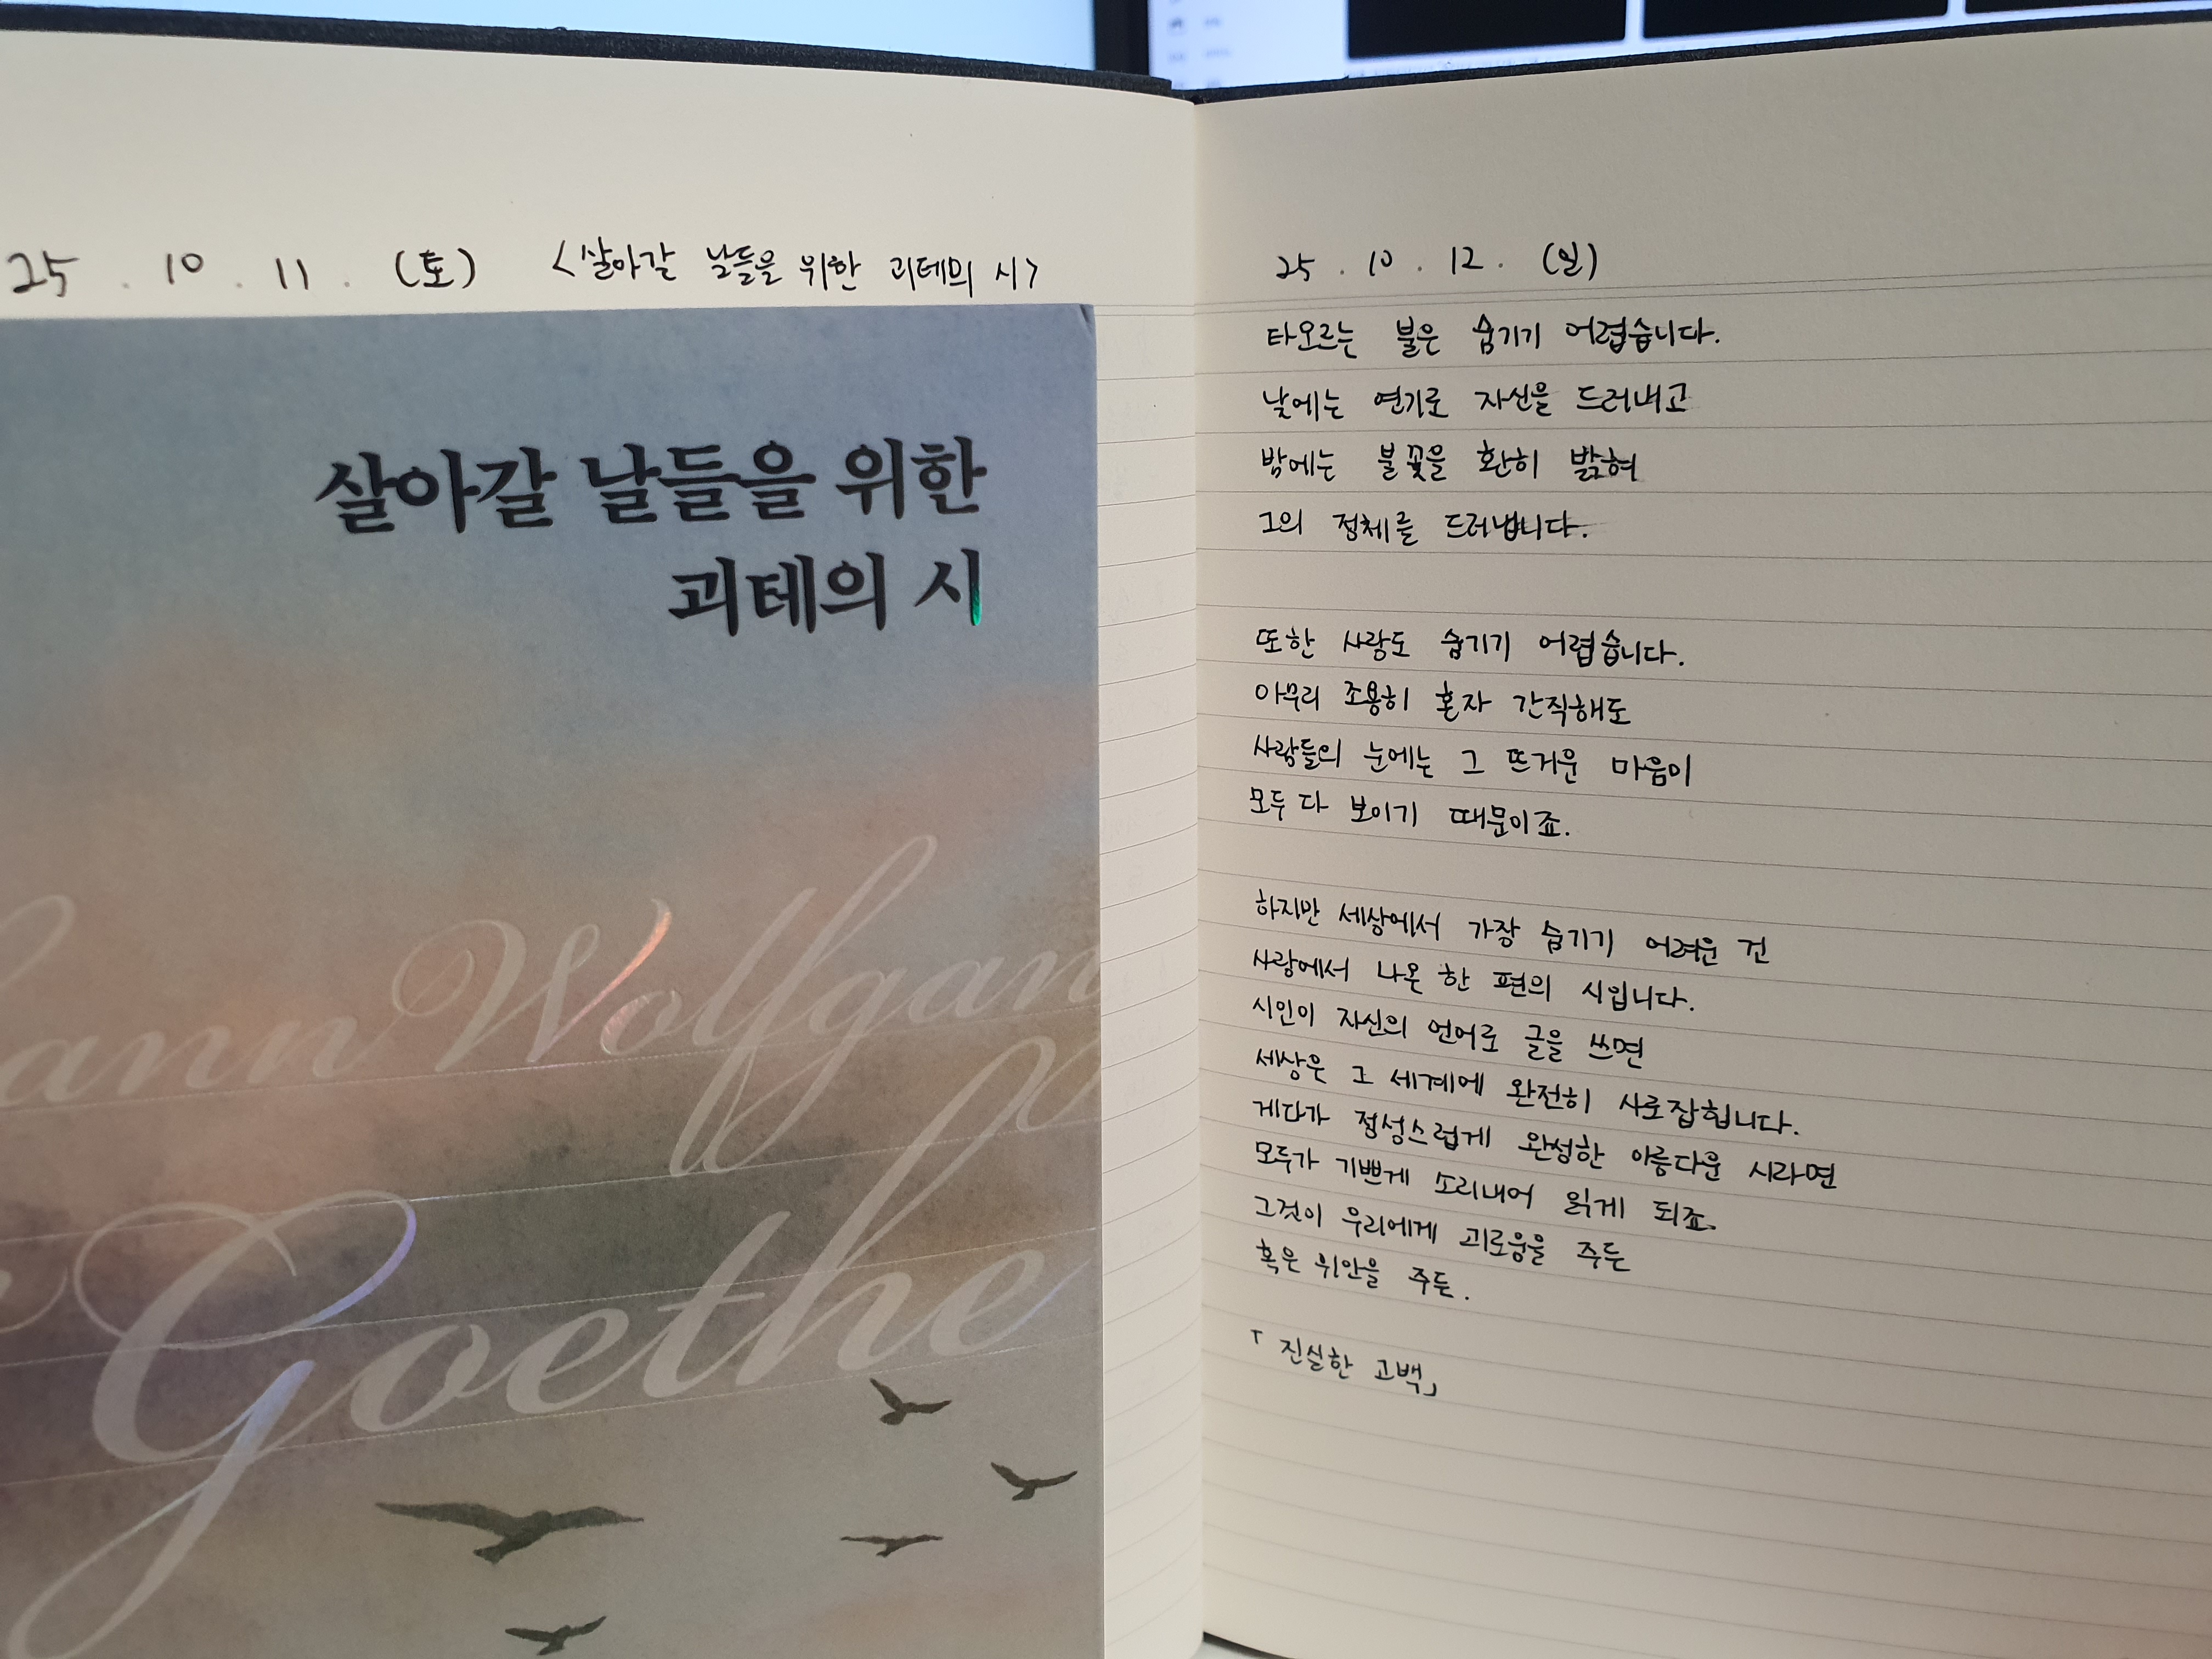 25 . 10 . 11 . (토) <살아갈 날들을 위한 괴테의 시>
살아갈 날들을 위한
괴테의 시
ann Wolfgan
Goethe
25 . 10 . 12 . (일)
타오르는 불은 숨기기 어렵습니다.
낮에는 연기로 자신을 드러내고
밤에는 불꽃을 환히 밝혀
그의 정체를 드러냅니다.
또한 사랑도 숨기기 어렵습니다.
아무리 조용히 혼자 간직해도
사람들의 눈에는 그 뜨거운 마음이
모두 다 보이기 때문이죠.
하지만 세상에서 가장 숨기기 어려운 건
사랑에서 나온 한 편의 시입니다.
시인이 자신의 언어로 글을 쓰면
세상은 그 세계에 완전히 사로잡힙니다.
게다가 정성스럽게 완성한 아름다운 시라면
모두가 기쁘게 소리내어 읽게 되죠.
그것이 우리에게 괴로움을 주든
혹은 위안을 주든.
「진실한 고백」